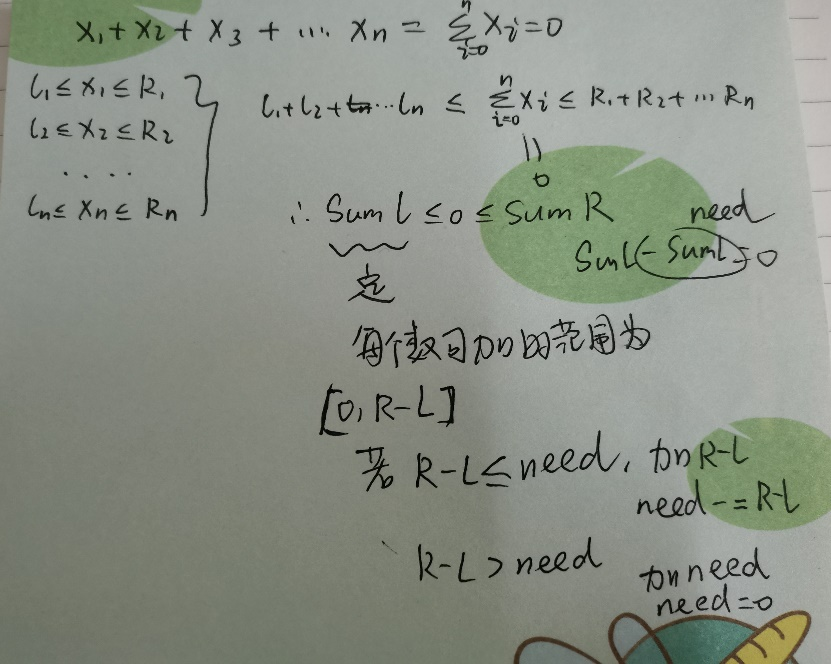 x₁ + x₂ + x₃ + ... xₙ = ∑ⁿᵢ₌₀ xᵢ = 0
l₁ ≤ x₁ ≤ R₁
l₁ + l₂ + ... lₙ ≤ ∑ⁿᵢ₌₀ xᵢ ≤ R₁ + R₂ + ... Rₙ
l₂ ≤ x₂ ≤ R₂
....
lₙ ≤ xₙ ≤ Rₙ
||
0
∴ Sum l ≤ 0 ≤ Sum R
need
Suml - Suml = 0
定
每个数可加的范围为
[0, R-L]
若 R-L ≤ need, 加 R-L
need -= R-L
R-L > need 加 need
need = 0